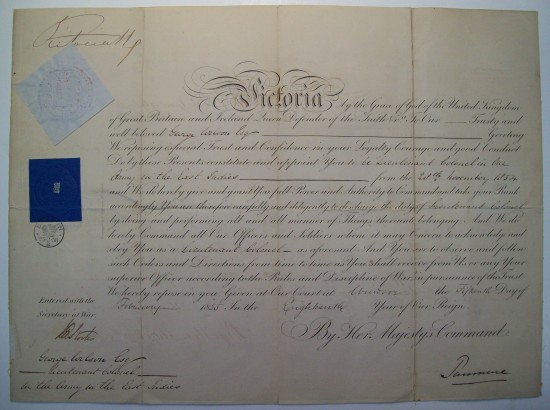 Victoria R
Victoria by the Grace of God of the United Kingdom
of Great Britain and Ireland Queen Defender of the Faith &c. To Our Trusty and
well beloved George Wilson Esq Greeting
We reposing especial Trust and Confidence in your Loyalty Courage and good Conduct
Do by these Presents, constitute and appoint You to be Lieutenant Colonel in Our
Army in the East Indies from the 28th November 1854
and We do hereby give and grant You full Power and Authority to Command and take your Rank
accordingly You are therefore carefully and diligently to discharge the duty of Lieutenant Colonel
by doing and performing all and all manner of Things thereunto belonging And We do
hereby Command all Our Officers and Soldiers whom it may Concern to acknowledge and
obey You as a Lieutenant Colonel as aforesaid And You are to observe and follow
such Orders and Directions from time to time as You shall receive from Us or any Your
superior Officer according to the Rules and Discipline of War in pursuance of the Trust
We hereby repose in you Given at Our Court at Windsor the Fifteenth Day of
February 1855 In the Eighteenth Year of Our Reign
By Her Majesty's Command
Entered with the
Secretary at War
Panmure
George Wilson Esq
Lieutenant Colonel
in the Army in the East Indies